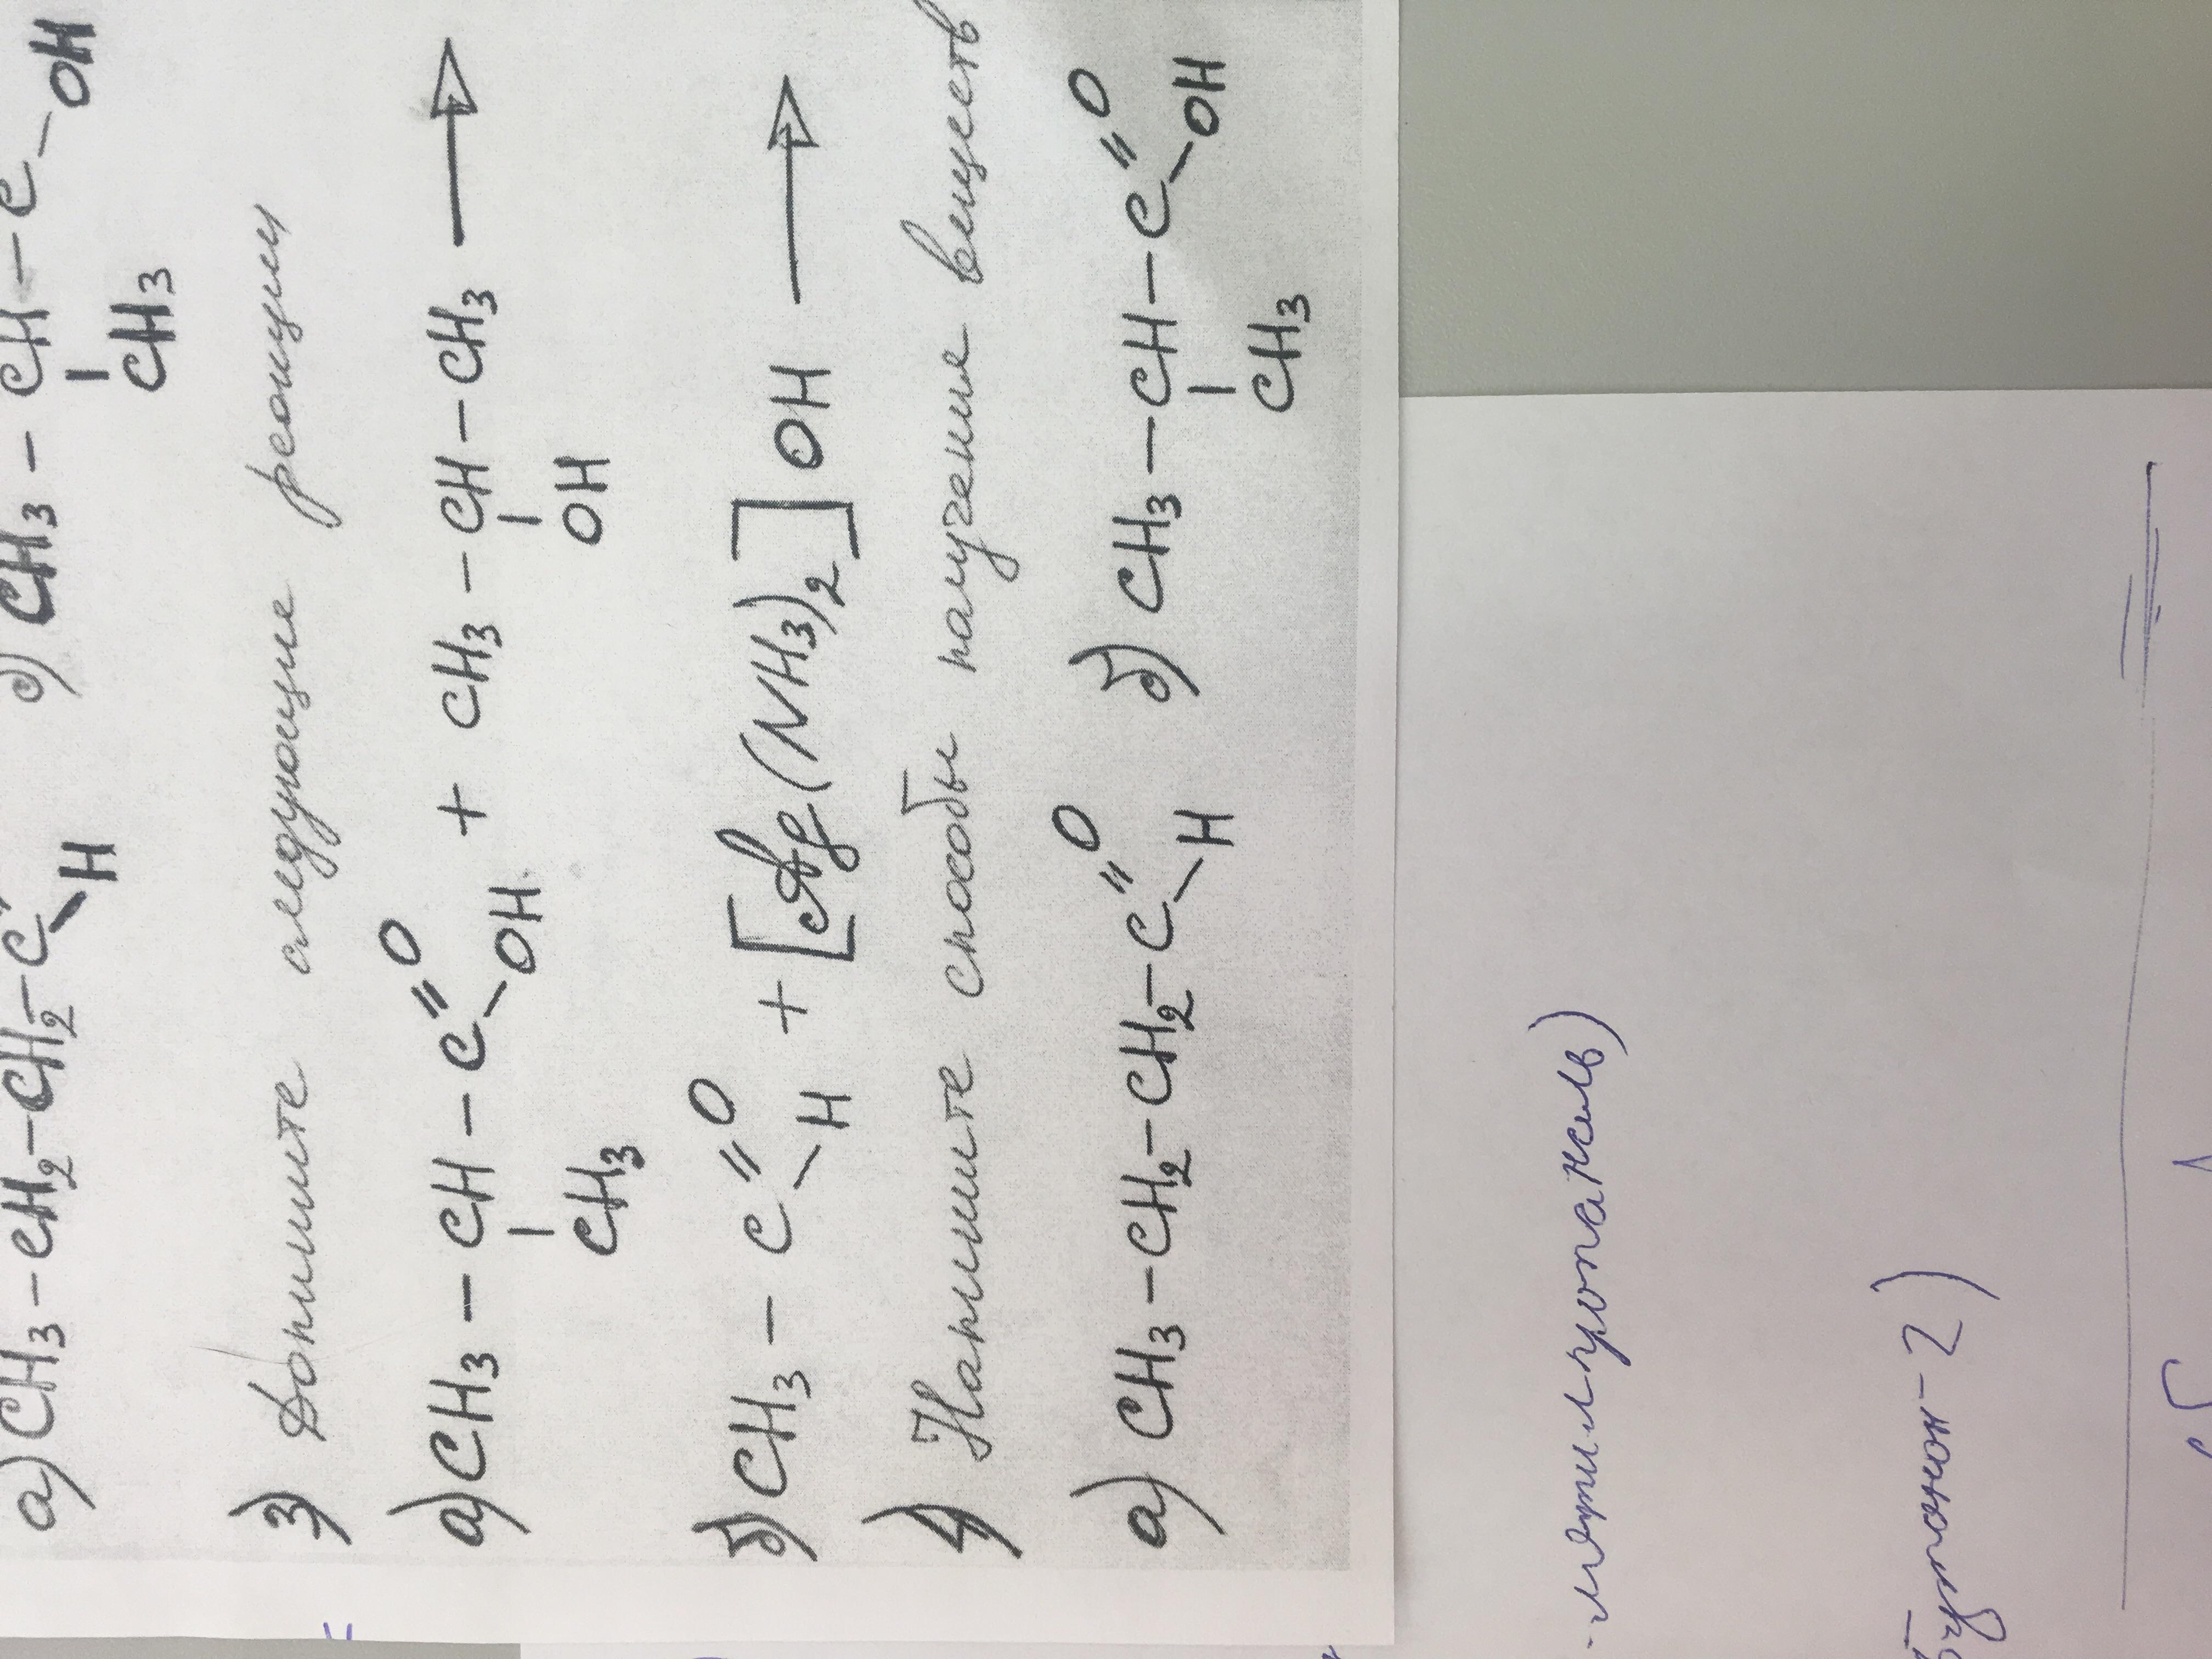 а) CH3 – CH2 – CH2 – C – H б) CH3 – CH – C – OH
CH3
3) Допишите следующие реакции
а) CH3 – CH – C = O – OH + CH3 – CH – CH3 →
CH3 OH
б) CH3 – C = O – H + [Ag(NH3)2]OH →
4) Напишите способы получения веществ
а) CH3 – CH2 – CH2 – C = O – H б) CH3 – CH – C = O – OH
CH3
-метилпропаналь)
бутанон-2)